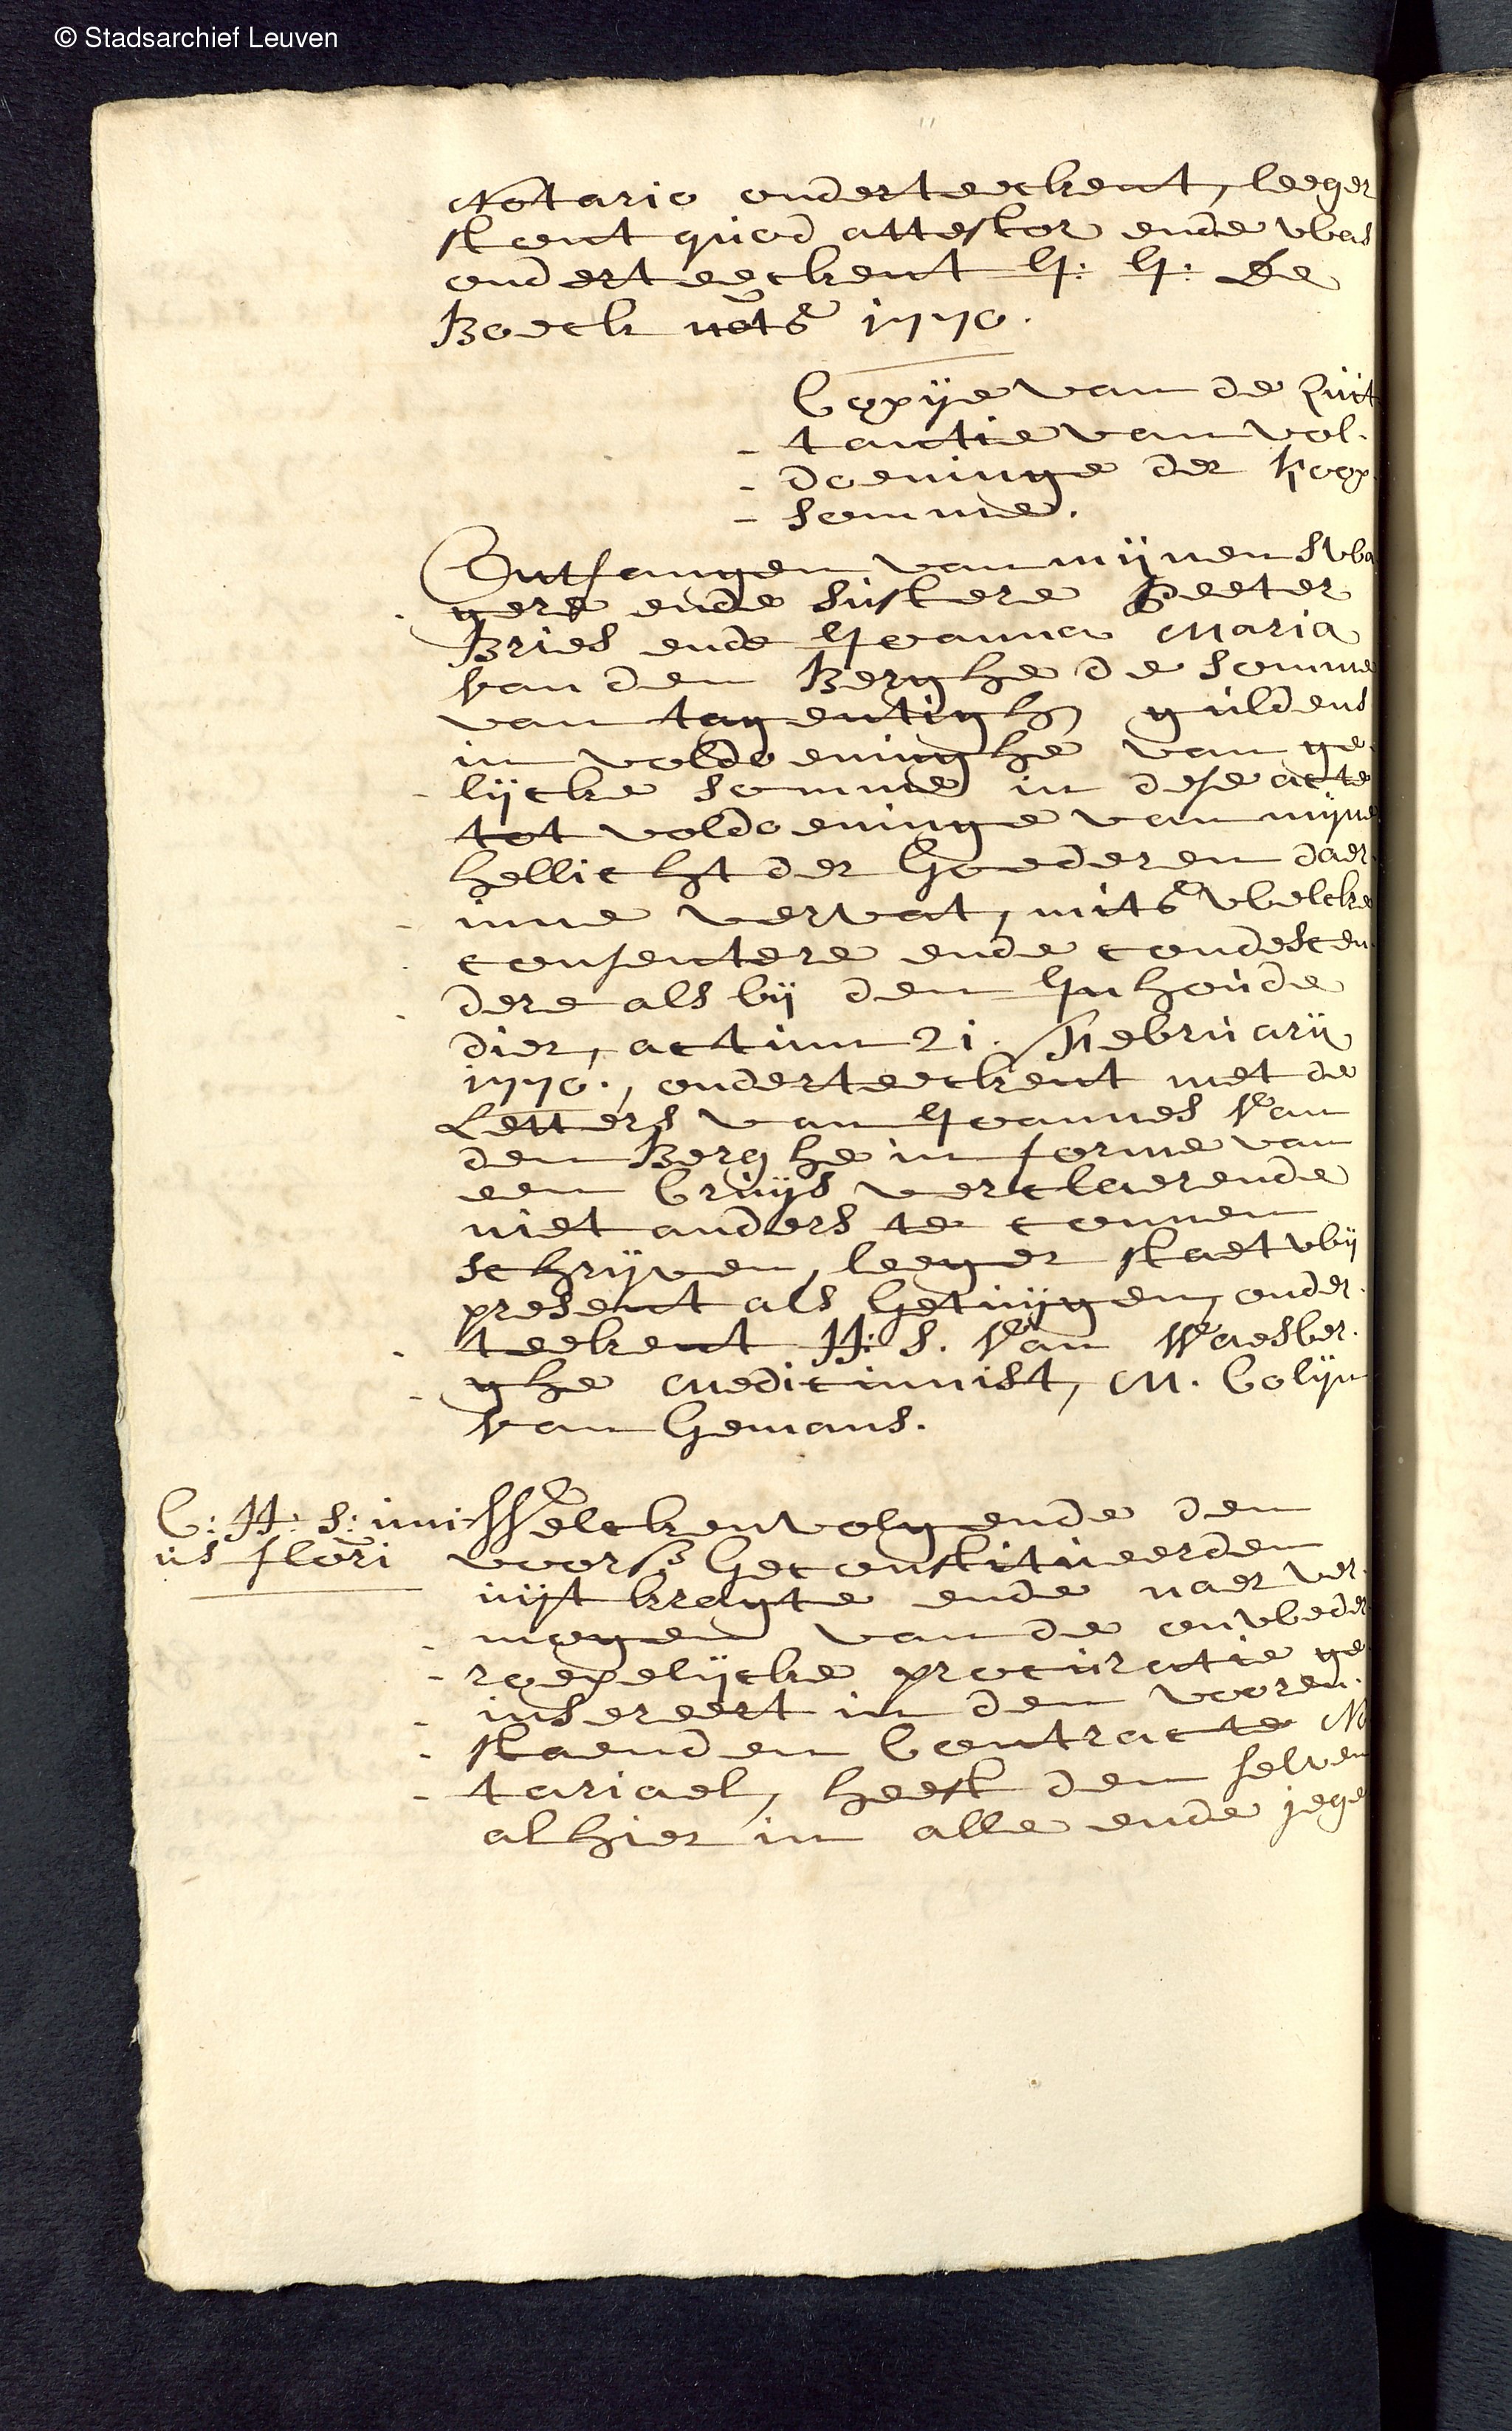 © Stadsarchief Leuven
Notario onderteeckent, leeger
stont quod attestor ende was
onderteeckent J: J: De
Boeck nots 1770.
Copije van de Quit
- tantie van vol-
- doeninge der koop
- somme.
Ontfangen van mijnen swa
- gere ende sustere Peeter
Bries ende Joanna Maria
van den Berghe de somme
van tagentigh guldens
in voldoeninghe van ge-
- lijcke somme in dese acte
tot voldoeninge van mijne
hellicht der Goederen daer-
- inne vervat, mits welcke
- consentere ende condescen-
- dere als bij den Inhoude
dier, actum 21. February
1770., onderteeckent met de
Letters van Joannes Van
den Berghe in forme van
een Cruijs verclaerende
niet anders te connen
schrijven, leeger staet wij
present als Getuijgen, onder-
- teekent H: S. Van Waesber-
- ghe Medicinnist, M. Colijn
van Gemans.
C: H: S: imi
us flori
Welckenvolgende den
voors. Geconstitueerden
uijt kragte ende naer ver-
- mogen van de onweder
- roepelijcke procuratie ge-
- insereert in den vooren-
- staenden Contracte No
- tariael, heeft den selven
alhier in alle ende jege